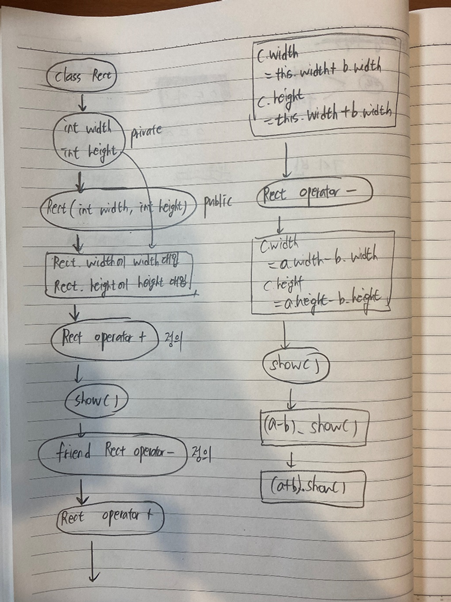 class Rect
int width
int height
private
Rect(int width, int height)
public
Rect. width에 width 대입
Rect. height에 height 대입
Rect operator + 정의
show()
friend Rect operator - 정의
Rect operator +
C.width
=this.width+ b.width
C.height
=this.width+b.width
Rect operator -
C.width
=a.width-b.width
C.height
=a.height-b.height
show()
(a-b). show()
(a+b).show()